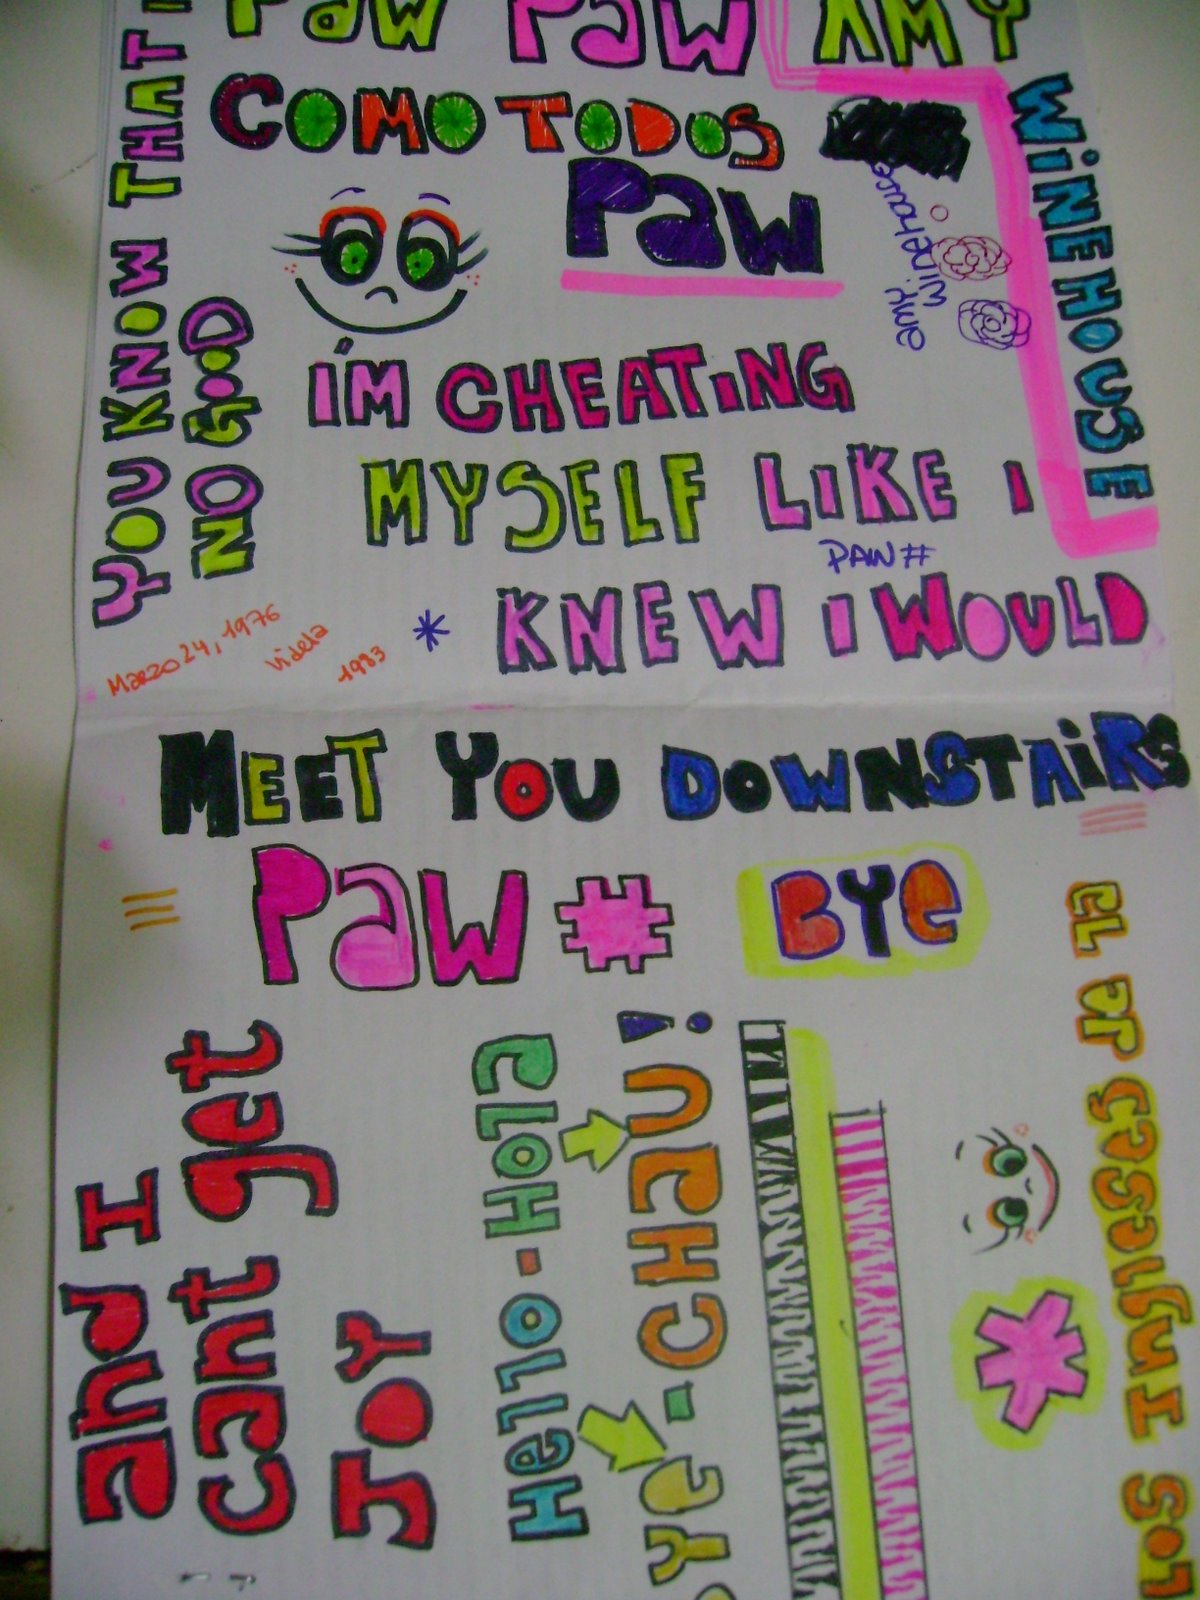 PaW PaW AMY
WiNEHOUSE
COMO TODOS
PaW
amy
winehouse
YOU KNOW THAT I
NO GooD
I'M CHEATiNG
MYSELF LiKE I
PAW#
KNEW I WOULD
Marzo 24, 1976
Videla
1983
*
MEET YOU DOWNSTAiRS
PaW # BYe
and I
cant get
JOY
Hello - Hola
Bye - CHaU!
Los Ingleses